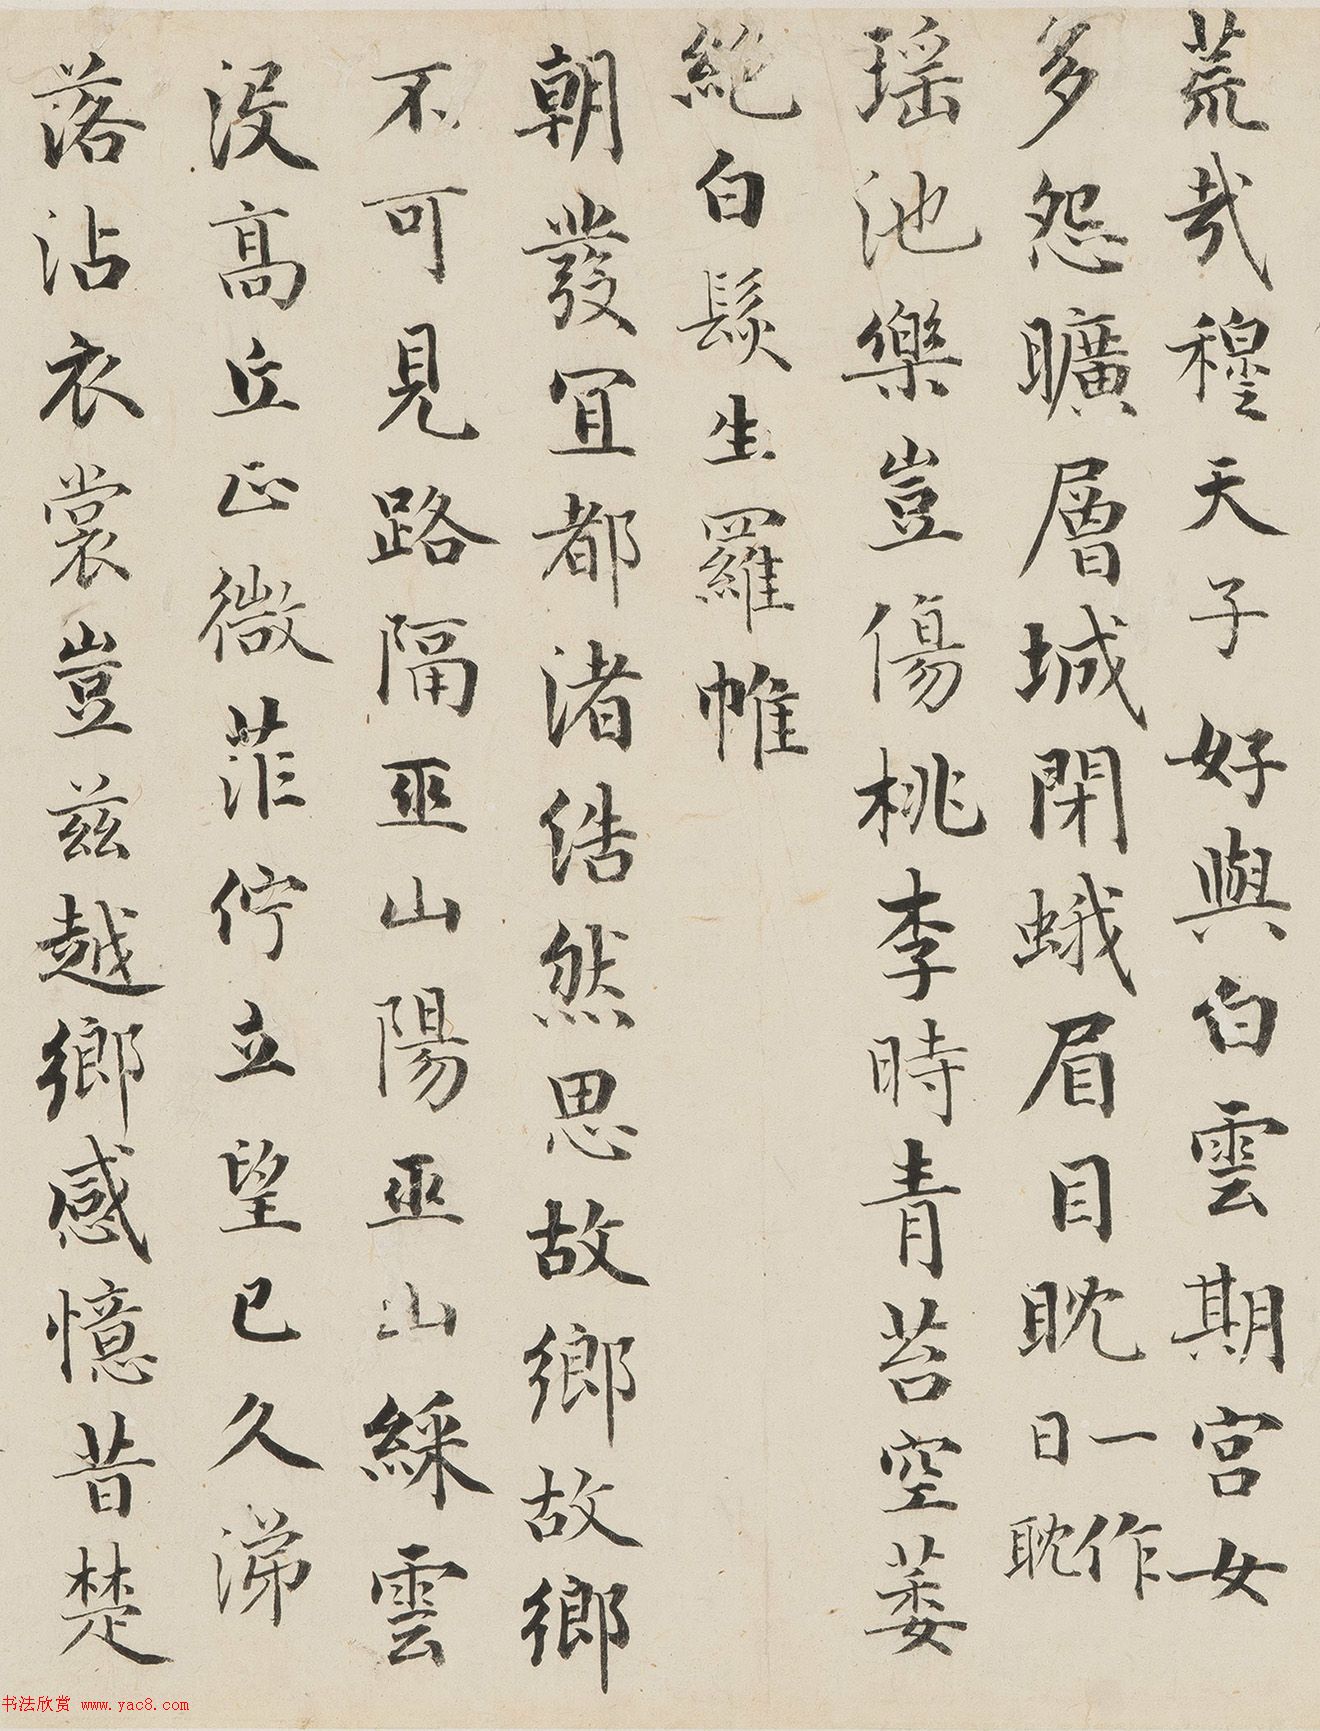 荒哉穆天子好與白雲期宮女
多怨曠層城閉蛾眉目耽一作日耽
瑶池樂豈傷桃李時青苔空萎
絶白髮生羅帷
朝發宜都渚浩然思故鄉故鄉
不可見路隔巫山陽巫山綵雲
没高丘正微茫佇立望已久涕
落沾衣裳豈兹越鄉感憶昔楚
书法欣赏 www.yac8.com